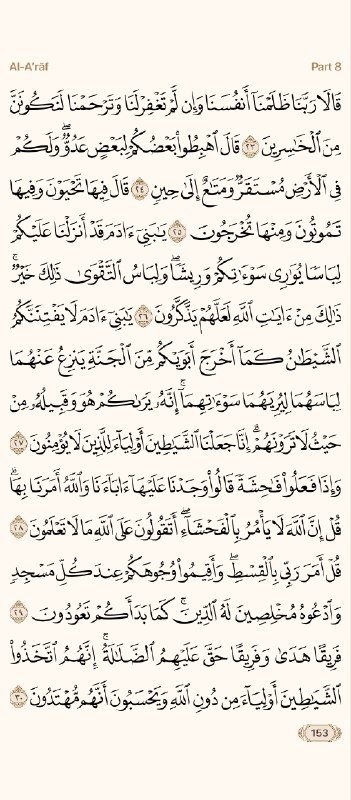 Al-A'rāf
Part 8
قَالَا رَبَّنَا ظَلَمْنَآ أَنفُسَنَا وَإِن لَّمْ تَغْفِرْ لَنَا وَتَرْحَمْنَا لَنَكُونَنَّ
مِنَ ٱلْخَـٰسِرِينَ ٢٣ قَالَ ٱهْبِطُوا۟ بَعْضُكُمْ لِبَعْضٍ عَدُوٌّ ۖ وَلَكُمْ
فِى ٱلْأَرْضِ مُسْتَقَرٌّ وَمَتَـٰعٌ إِلَىٰ حِينٍ ٢٤ قَالَ فِيهَا تَحْيَوْنَ وَفِيهَا
تَمُوتُونَ وَمِنْهَا تُخْرَجُونَ ٢٥ يَـٰبَنِىٓ ءَادَمَ قَدْ أَنزَلْنَا عَلَيْكُمْ
لِبَاسًا يُوَٰرِى سَوْءَٰتِكُمْ وَرِيشًا ۖ وَلِبَاسُ ٱلتَّقْوَىٰ ذَٰلِكَ خَيْرٌ ۚ
ذَٰلِكَ مِنْ ءَايَـٰتِ ٱللَّهِ لَعَلَّهُمْ يَذَّكَّرُونَ ٢٦ يَـٰبَنِىٓ ءَادَمَ لَا يَفْتِنَنَّكُمُ
ٱلشَّيْطَـٰنُ كَمَآ أَخْرَجَ أَبَوَيْكُم مِّنَ ٱلْجَنَّةِ يَنزِعُ عَنْهُمَا
لِبَاسَهُمَا لِيُرِيَهُمَا سَوْءَٰتِهِمَآ ۗ إِنَّهُۥ يَرَىٰكُمْ هُوَ وَقَبِيلُهُۥ مِنْ
حَيْثُ لَا تَرَوْنَهُمْ ۗ إِنَّا جَعَلْنَا ٱلشَّيَـٰطِينَ أَوْلِيَآءَ لِلَّذِينَ لَا يُؤْمِنُونَ ٢٧
وَإِذَا فَعَلُوا۟ فَـٰحِشَةً قَالُوا۟ وَجَدْنَا عَلَيْهَآ ءَابَآءَنَا وَٱللَّهُ أَمَرَنَا بِهَا ۗ
قُلْ إِنَّ ٱللَّهَ لَا يَأْمُرُ بِٱلْفَحْشَآءِ ۖ أَتَقُولُونَ عَلَى ٱللَّهِ مَا لَا تَعْلَمُونَ ٢٨
قُلْ أَمَرَ رَبِّى بِٱلْقِسْطِ ۖ وَأَقِيمُوا۟ وُجُوهَكُمْ عِندَ كُلِّ مَسْجِدٍ
وَٱدْعُوهُ مُخْلِصِينَ لَهُ ٱلدِّينَ ۚ كَمَا بَدَأَكُمْ تَعُودُونَ ٢٩
فَرِيقًا هَدَىٰ وَفَرِيقًا حَقَّ عَلَيْهِمُ ٱلضَّلَـٰلَةُ ۗ إِنَّهُمُ ٱتَّخَذُوا۟
ٱلشَّيَـٰطِينَ أَوْلِيَآءَ مِن دُونِ ٱللَّهِ وَيَحْسَبُونَ أَنَّهُم مُّهْتَدُونَ ٣٠
153